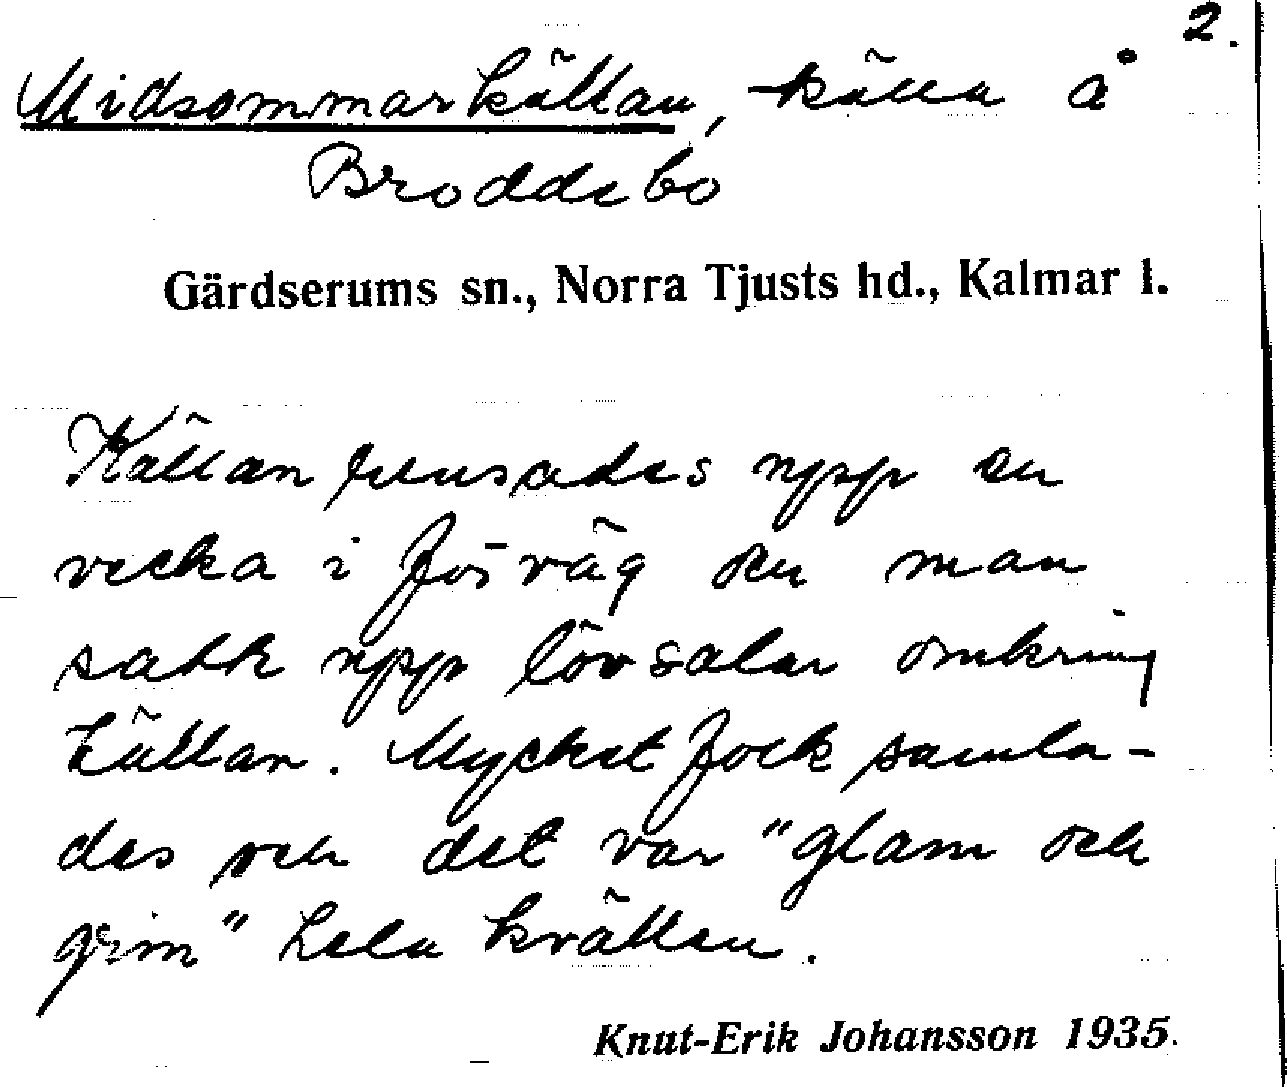 2.
Midsommarkällan, källa å
Broddebo
Gärdserums sn., Norra Tjusts hd., Kalmar l.
Källan rensades upp en
vecka i förväg och man
satte upp lövsalar omkring
källan. Mycket folk samla-
des och det var "glam och
grim" hela kvällen.
Knut-Erik Johansson 1935.